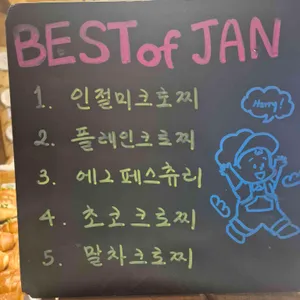 BEST of JAN
Harry!
1. 인절미크로찌
2. 플레인크로찌
3. 에그페스츄리
4. 초코크로찌
5. 말차크로찌